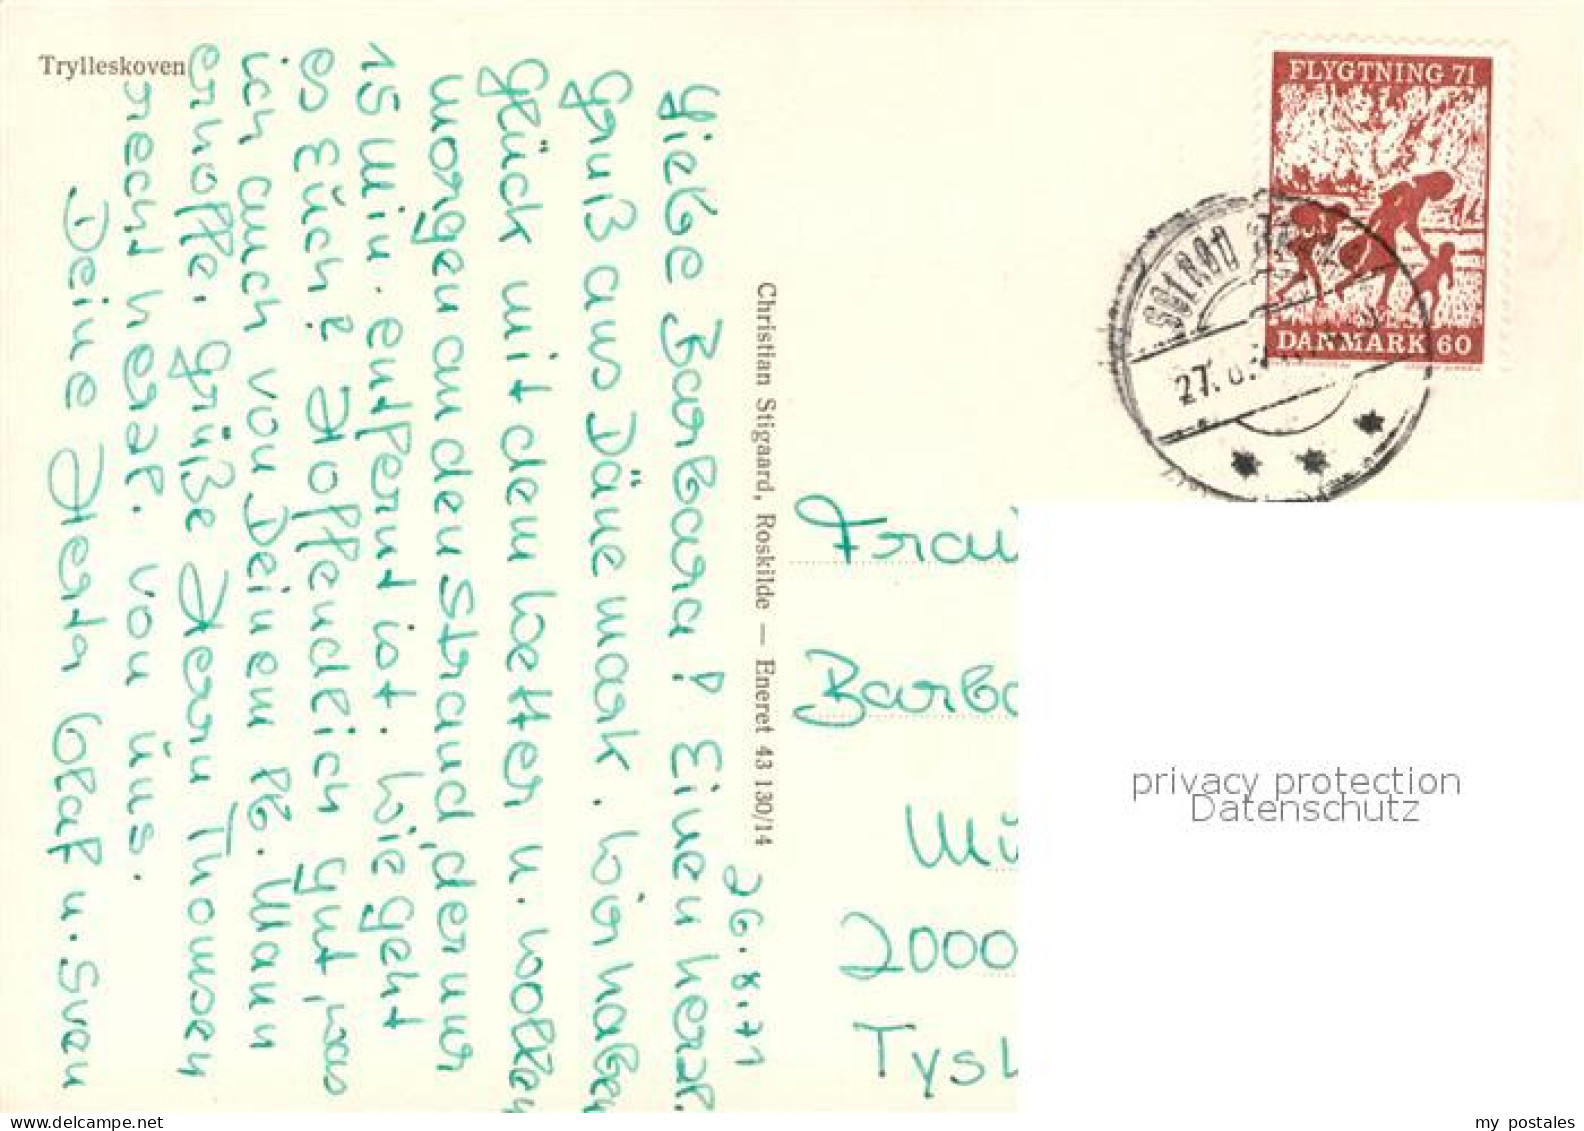 Trylleskoven
FLYGTNING 71
DANMARK 60
27.
Christian Stigaard, Roskilde — Eneret 43 130/14
26.8.71
Liebe Barbara! Einen herzl.
Gruß aus Dänemark. Wir haben
Glück mit dem Wetter u. wollen
morgen an den Strand, der nur
15 Min. entfernt ist. Wie geht
es Euch? Hoffendlich gut, was
ich auch von Deinem Pfl. Mann
erhoffe. Grüße Herrn Thomsen
recht herzl. von uns.
Deine Herta Olaf u. Sven
Frau
Barba
2000
Tys
privacy protection
Datenschutz
www.delcampe.net
my_postales